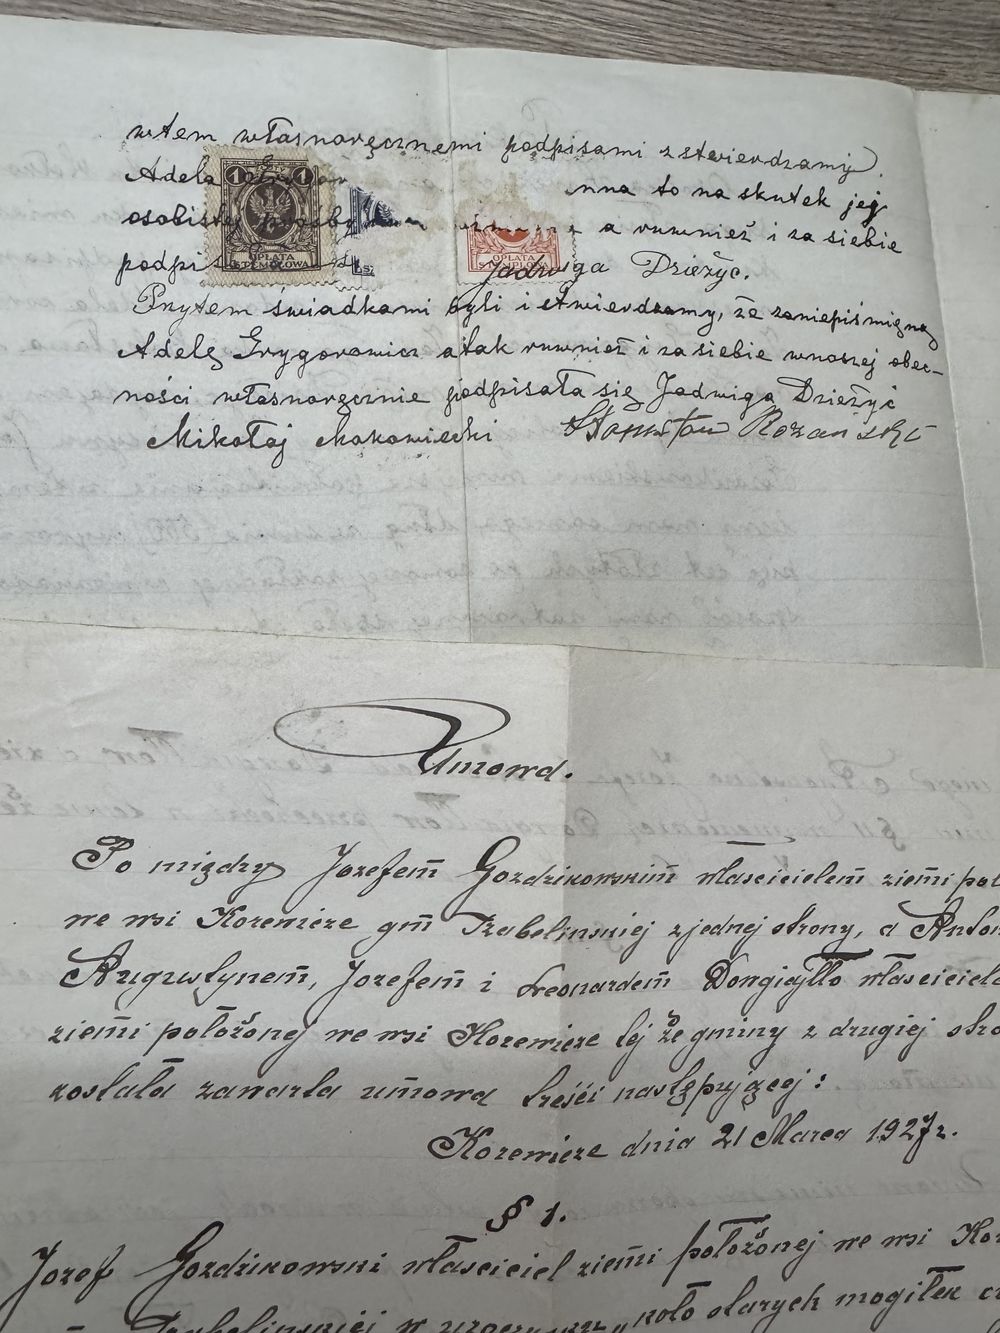 wtem własnoręcznemi podpisami zstwierdzamy.
Adela nna to na skutek jej
osobistej a ruwnież i za siebie
podpi Jadwiga Dzieżyc.
1 1
OPŁATA STEMPLOWA
OPŁATA STEMPLOWA
Przytem świadkami byli i stwierdzamy, że zaniepiśmięną
Adelę Grygorowicz a tak ruwnież i za siebie wnaszej obec-
ności własnoręcznie podpisała się Jadwiga Dzieżyć
Mikołaj Makowiecki Stanisław Rozanski
Umowa.
Po między Jozefem̄ Gozdzikowskim̄ własćicielem̄ ziem̄i poł
we wsi Korewicze gm̄ Izabelinskiej zjednej strony, a Anton
Augustynem̄, Jozefem̄ i Leonardem̄ Dongiałło własćiciela
ziem̄i położonej we wsi Korewicze tej że gminy z drugiej stro
została zawarta um̄owa treści następującej:
Korewicze dnia 21 Marca 1927 r.
§ 1.
Jozef Gozdzikowski własćiciel ziem̄i położonej we wsi Kor
Izabelinskiej w koło starych mogiłek